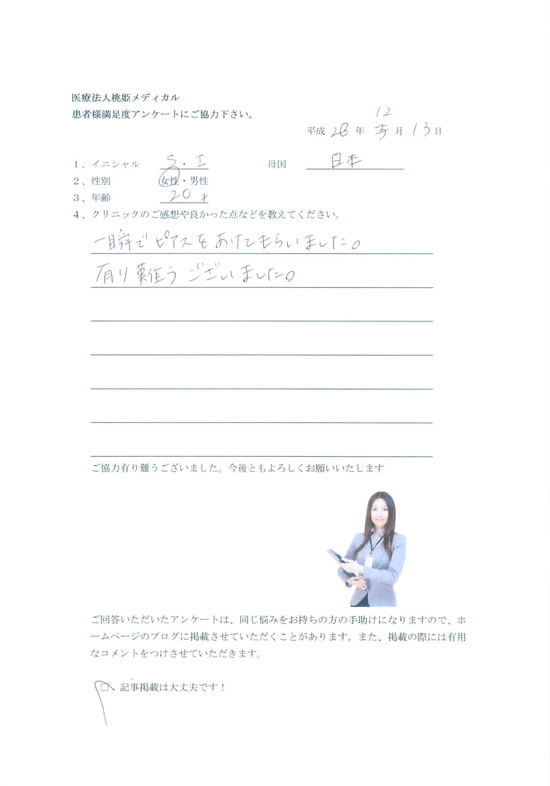 医療法人桃姫メディカル
患者様満足度アンケートにご協力下さい。
12
平成 28 年 月 13 日
1、イニシャル S.I 母国 日本
2、性別 女性・男性
3、年齢 20才
4、クリニックのご感想や良かった点などを教えてください。
一瞬でピアスをあけてもらいました。
有り難うございました。
ご協力有り難うございました。今後ともよろしくお願いいたします
ご回答いただいたアンケートは、同じ悩みをお持ちの方の手助けになりますので、ホ
ームページのブログに掲載させていただくことがあります。また、掲載の際には有用
なコメントをつけさせていただきます。
□、記事掲載は大丈夫です！